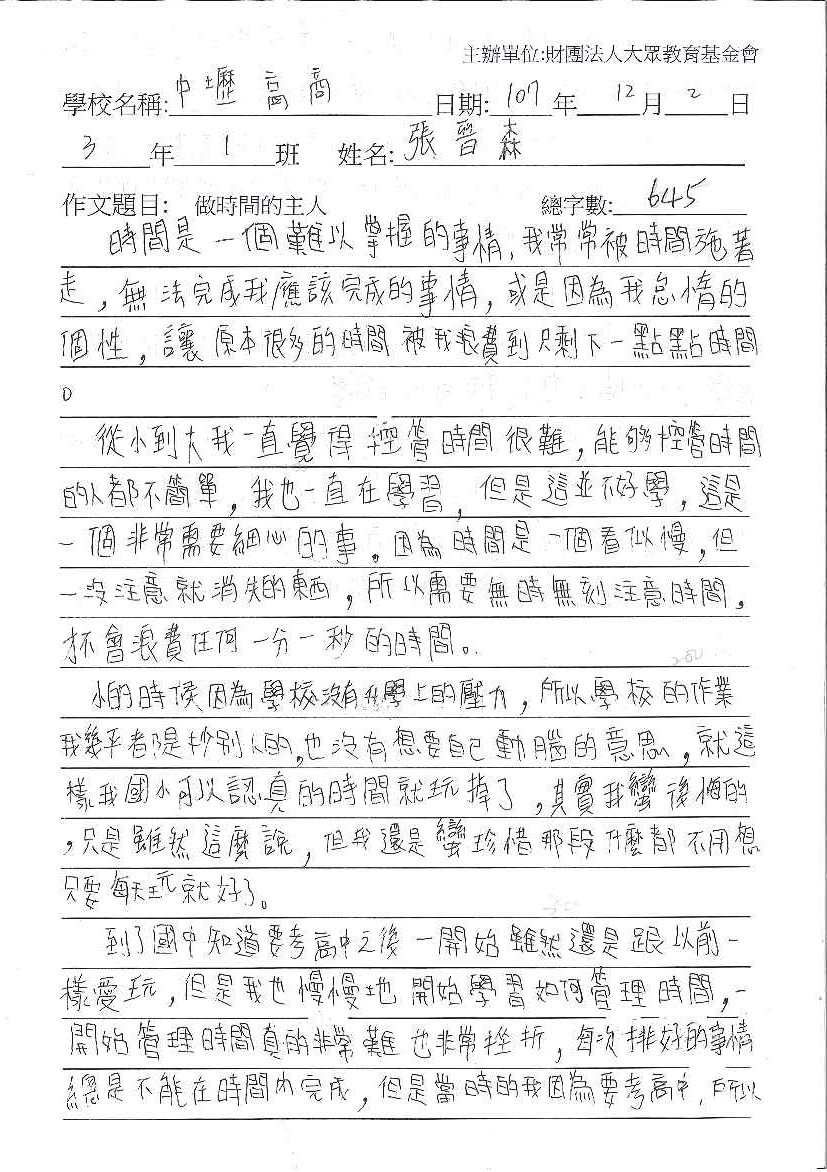 主辦單位:財團法人大眾教育基金會
學校名稱:中壢高商 日期:107年12月2日
3年1班 姓名:張晉森
作文題目: 做時間的主人 總字數:645
時間是一個難以掌握的事情,我常常被時間拖著
走,無法完成我應該完成的事情,或是因為我怠惰的
個性,讓原本很多的時間被我浪費到只剩下一點點時間
。
從小到大我一直覺得控管時間很難,能夠控管時間
的人都不簡單,我也一直在學習,但是這並不好學,這是
一個非常需要細心的事。因為時間是一個看似慢,但
一沒注意就消失的東西,所以需要無時無刻注意時間,
才不會浪費任何一分一秒的時間。
小的時候因為學校沒有升學上的壓力,所以學校的作業
我幾乎都是抄別人的,也沒有想要自己動腦的意思,就這
樣我國小可以認真的時間就玩掉了,其實我蠻後悔的
,只是雖然這麼說,但我還是蠻珍惜那段什麼都不用想
只要每天玩就好了。
到了國中知道要考高中之後一開始雖然還是跟以前一
樣愛玩,但是我也慢慢地開始學習如何管理時間,一
開始管理時間真的非常難也非常挫折,每次排好的事情
總是不能在時間內完成,但是當時的我因為要考高中,所以